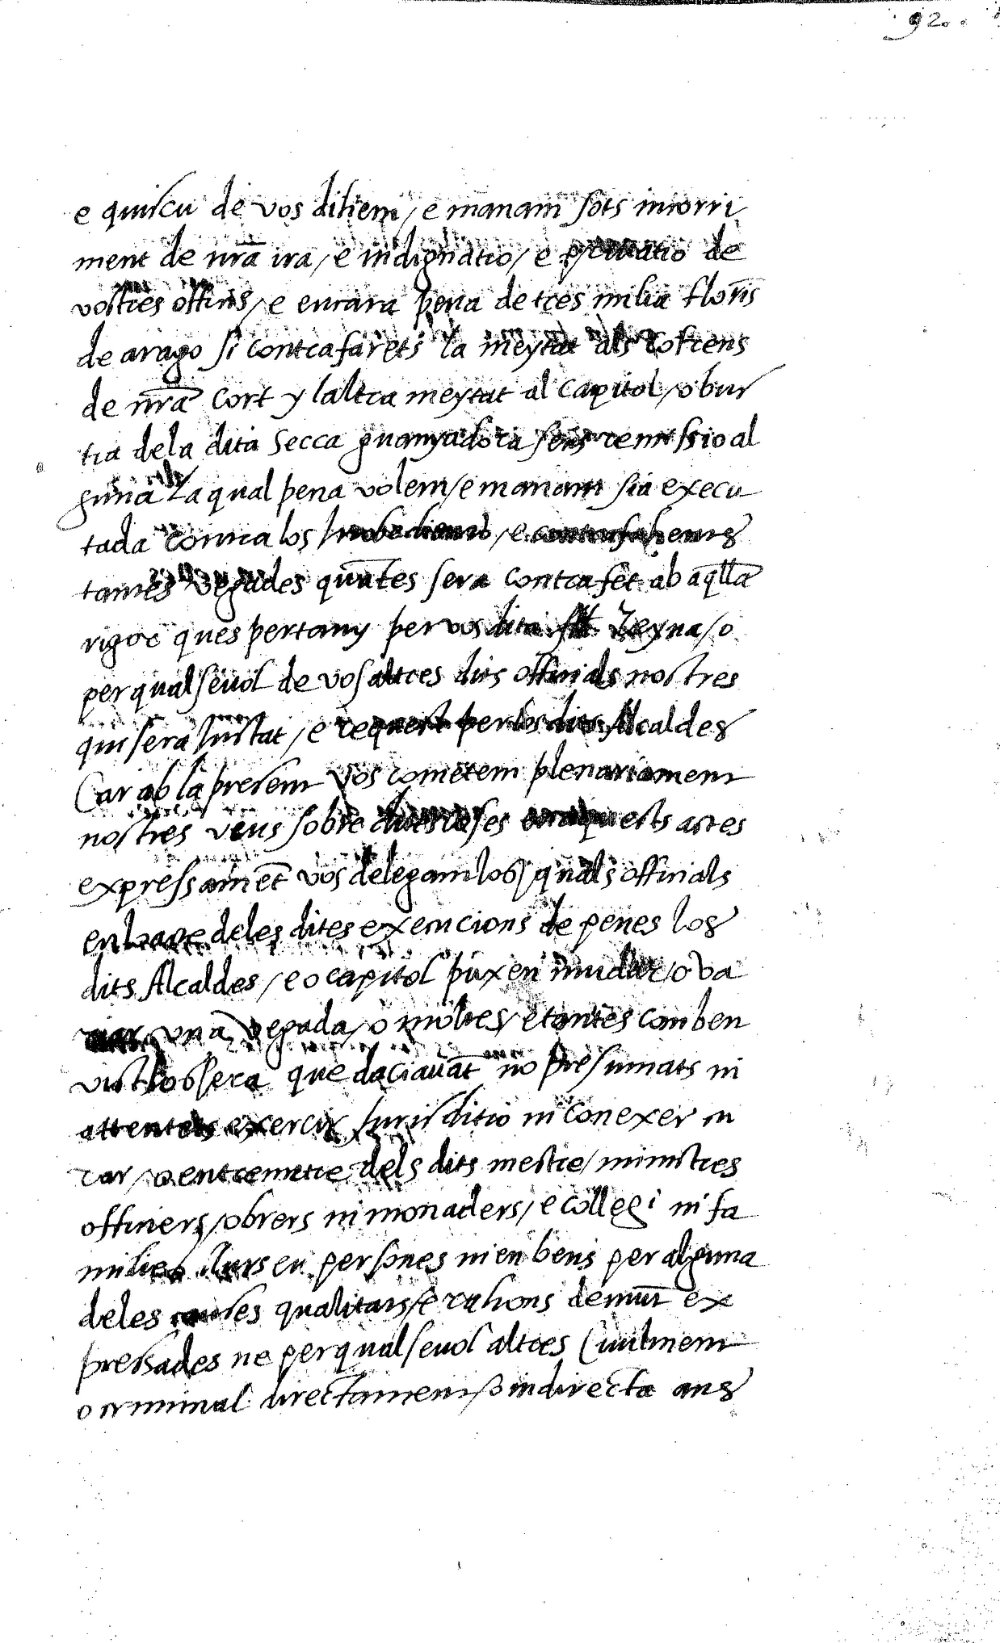 92.
e quiscu de vos dihem / e manam sots incorri
ment de nrā ira / e indignatio / e privatio de
vostres officis / e encara pena de tres milia florīs
de arago si contrafarets la meytat als cofrens
de nrā Cort y laltra meytat al Capitol / o bur
tia dela dita Secca guanyadora sens remissio al
guna La qual pena volem / e manam sia execu
tada contra los inobedients / e contrafahents
tantes vegades quātes sera contrafet ab aq̄lla
rigor ques pertany per vos dita Reyna / o
per qualsevol de vosaltres dits officials nostres
qui sera instat / e request per los dits Alcaldes
Car ab la present vos cometem plenariament
nostres veus sobre diverses en aquests actes
expressamēt vos delegam los quals officials
en deles dites execucions de penes los
dits Alcaldes / e o capitol puxen mudar / o va
riar una vegada / o moltes / e tantes com ben
vist los sera que daciavāt no presumats ni
attentets exercir Jurisditio ni conexer in
car / o entremetre dels dits mestre / ministres
officiers / obrers ni monaders / e collegi ni fa
milies llurs en persones ni en bens per alguna
deles causes qualitats / e rahons demūt ex
pressades ne per qualsevol altres Civilment
o criminal directament / o indirecta ans